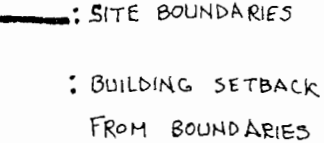 : SITE BOUNDARIES
: BUILDING SETBACK
FROM BOUNDARIES